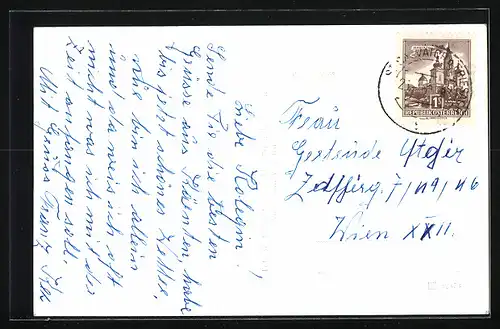 Liebe Kolegin!
Sende Dir die besten
Grüsse aus Kärnten habe
bis jetzt schönes Wetter,
nur bin ich allein
und da weis ich oft
nicht was ich mit der
Zeit anfangen soll.
Mit Gruss Franz
Frau
Gertinde
Wien XXII.
REPUBLIK ÖSTERREICH